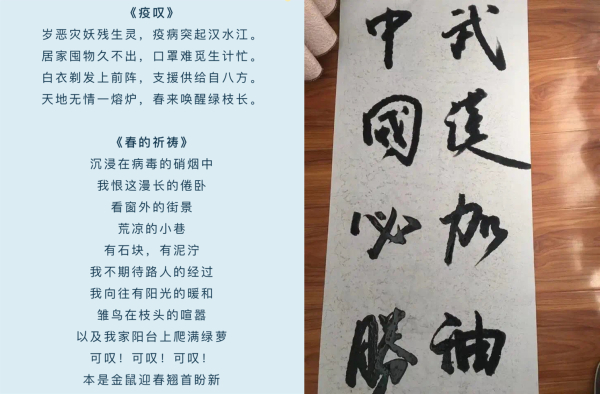 《疫叹》
岁恶灾妖残生灵，疫病突起汉水江。
居家囤物久不出，口罩难觅生计忙。
白衣剃发上前阵，支援供给自八方。
天地无情一熔炉，春来唤醒绿枝长。
《春的祈祷》
沉浸在病毒的硝烟中
我恨这漫长的倦卧
看窗外的街景
荒凉的小巷
有石块，有泥泞
我不期待路人的经过
我向往有阳光的暖和
雏鸟在枝头的喧嚣
以及我家阳台上爬满绿萝
可叹！可叹！可叹！
本是金鼠迎春翘首盼新
武漢加油
中國必勝